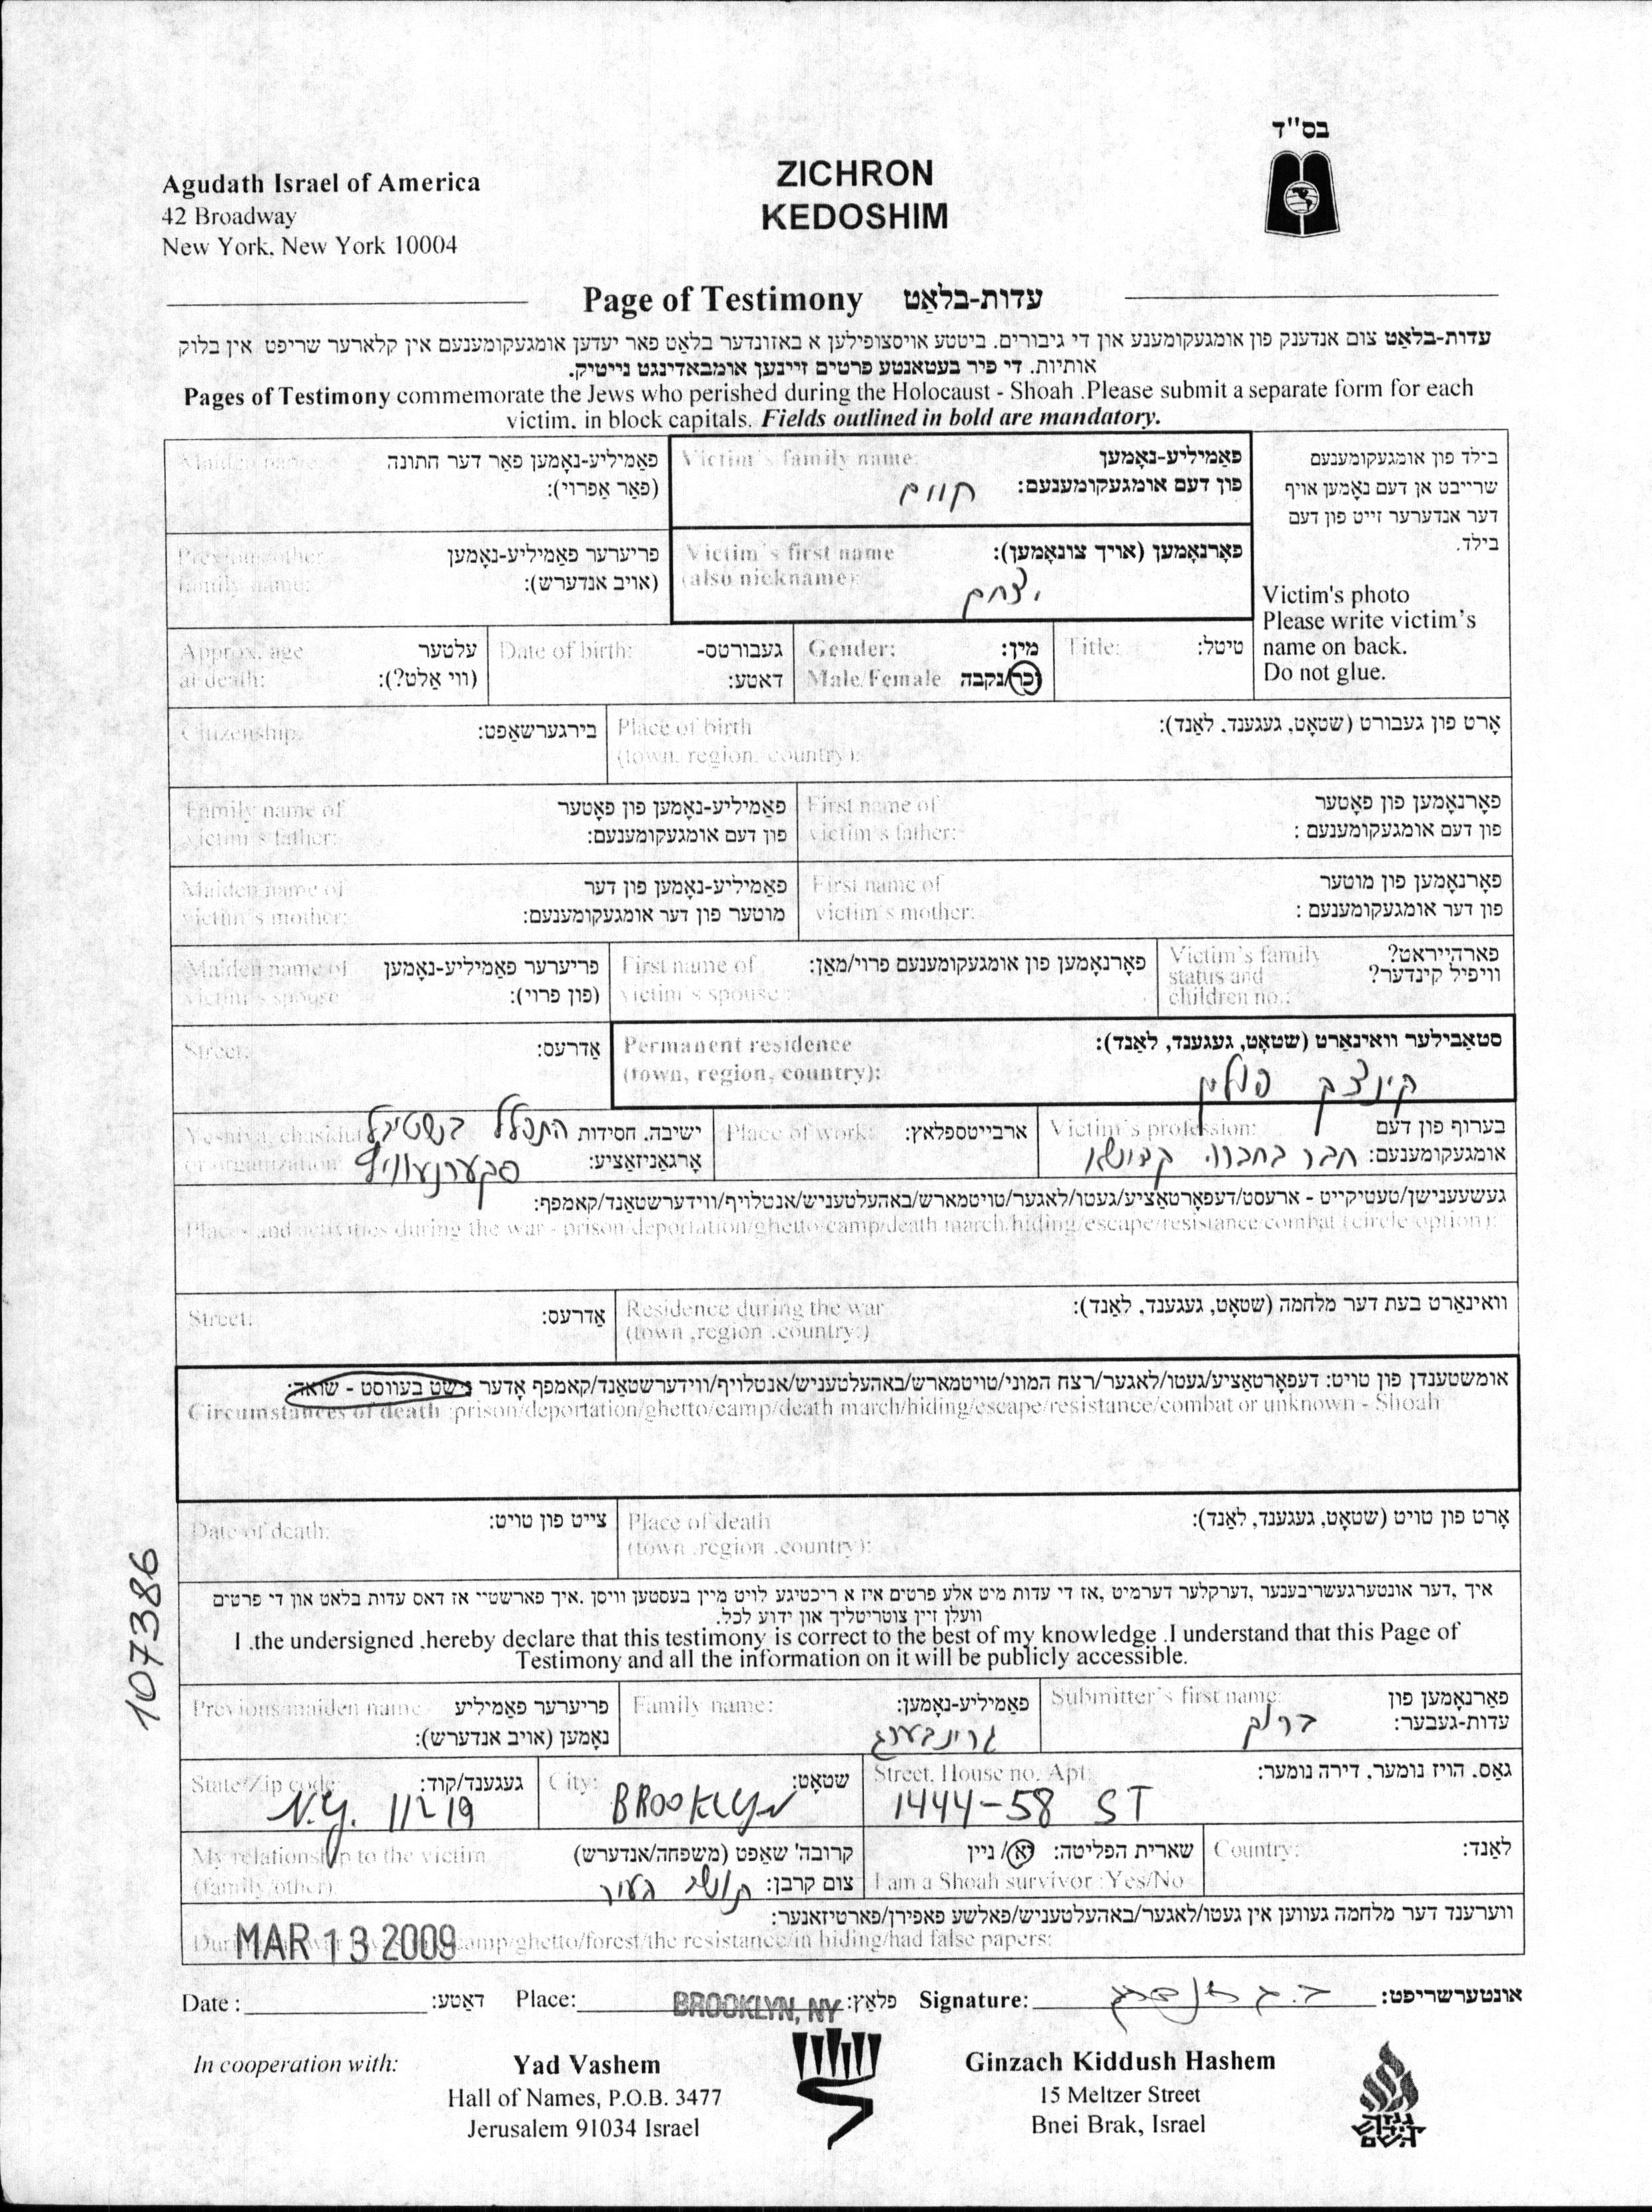 בס"ד
Agudath Israel of America
42 Broadway
New York, New York 10004
ZICHRON
KEDOSHIM
Page of Testimony עדות-בלאַט
עדות-בלאַט צום אנדענק פון אומגעקומענע און די גיבורים. ביטטע אויסצופילען א באזונדער בלאַט פאר יעדען אומגעקומענעם אין קלארער שריפט אין בלוק
אותיות. די פיר בעטאנטע פרטים זיינען אומבאדינגט נייטיק.
Pages of Testimony commemorate the Jews who perished during the Holocaust - Shoah .Please submit a separate form for each
victim, in block capitals. Fields outlined in bold are mandatory.
בילד פון אומגעקומענעם
שרייבט אן דעם נאָמען אויף
דער אנדערער זייט פון דעם
בילד.
Victim's photo
Please write victim's
name on back.
Do not glue.
Victim's family name: פאַמיליע-נאָמען
פון דעם אומגעקומענעם:
Maiden name: פאַמיליע-נאָמען פאַר דער חתונה
(פאַר אַפרוי):
Victim's first name פאָרנאָמען (אויך צונאָמען):
(also nickname):
יצחק
Previous/other פריערער פאַמיליע-נאָמען
family name: (אויב אנדערש):
Title: טיטל:
Gender: מין:
Male/Female זכר/נקבה
Date of birth: געבורטס-
דאַטע:
Approx. age עלטער
at death: (ווי אַלט?):
Place of birth אָרט פון געבורט (שטאָט, געגענד, לאַנד):
(town, region, country):
Citizenship: בירגערשאַפט:
First name of פאָרנאָמען פון פאָטער
victim's father: פון דעם אומגעקומענעם :
Family name of פאַמיליע-נאָמען פון פאָטער
victim's father: פון דעם אומגעקומענעם:
First name of פאָרנאָמען פון מוטער
victim's mother: פון דער אומגעקומענעם :
Maiden name of פאַמיליע-נאָמען פון דער
victim's mother: מוטער פון דער אומגעקומענעם:
Victim's family פארהייראט?
status and וויפיל קינדער?
children no.:
First name of פאָרנאָמען פון אומגעקומענעם פרוי/מאַן:
victim's spouse :
Maiden name of פריערער פאַמיליע-נאָמען
victim's spouse (פון פרוי):
Permanent residence סטאַבילער וואינאַרט (שטאָט, געגענד, לאַנד):
(town, region, country):
קינצק פולין
Street: אַדרעס:
Victim's profession: בערוף פון דעם
אומגעקומענעם: חבר בחברה
Place of work: ארבייטספלאץ:
Yeshiva, chasidut ישיבה, חסידות התפלל בשטיבל
or organization: אָרגאַניזאַציע: סקערנעוויץ
געשעענישן/טעטיקייט - ארעסט/דעפּאָרטאַציע/געטו/לאגער/טויטמארש/באהעלטעניש/אנטלויף/ווידערשטאַנד/קאמפף:
Places and activities during the war - prison/deportation/ghetto/camp/death march/hiding/escape/resistance/combat (circle option):
Residence during the war וואינאַרט בעת דער מלחמה (שטאָט, געגענד, לאַנד):
(town ,region .country:)
Street: אַדרעס:
אומשטענדן פון טויט: דעפּאָרטאַציע/געטו/לאגער/רצח המוני/טויטמארש/באהעלטעניש/אנטלויף/ווידערשטאַנד/קאמפף אָדער נישט בעווסט - שואה:
Circumstances of death :prison/deportation/ghetto/camp/death march/hiding/escape/resistance/combat or unknown - Shoah
Place of death אָרט פון טויט (שטאָט, געגענד, לאַנד):
(town .region .country):
Date of death: צייט פון טויט:
איך ,דער אונטערגעשריבענער ,דערקלער דערמיט ,אז די עדות מיט אלע פרטים איז א ריכטיגע לויט מיין בעסטען וויסן .איך פארשטיי אז דאס עדות בלאט און די פרטים
וועלן זיין צוטריטליך און ידוע לכל.
I .the undersigned .hereby declare that this testimony is correct to the best of my knowledge .I understand that this Page of
Testimony and all the information on it will be publicly accessible.
Submitter's first name: פאַרנאָמען פון
עדות-געבער: ברוך
Family name: פאַמיליע-נאָמען:
גרינבערג
Previous/maiden name פריערער פאַמיליע
נאָמען (אויב אנדערש):
Street, House no, Apt: גאַס. הויז נומער, דירה נומער:
1444-58 ST
City: שטאָט:
BROOKLYN
State/Zip code: געגענד/קוד:
N.Y. 11219
Country: לאַנד:
שארית הפליטה: יא/ ניין
I am a Shoah survivor :Yes/No
My relationship to the victim קרובה' שאַפט (משפחה/אנדערש)
(family/other) צום קרבן: תושב העיר
ווערענד דער מלחמה געווען אין געטו/לאגער/באהעלטעניש/פאלשע פאפירן/פארטיזאנער:
camp/ghetto/forest/the resistance/in hiding/had false papers:
MAR 13 2009
107386
Date : דאַטע: Place: BROOKLYN, NY פלאַץ: Signature: אונטערשריפט:
In cooperation with:
Yad Vashem
Hall of Names, P.O.B. 3477
Jerusalem 91034 Israel
Ginzach Kiddush Hashem
15 Meltzer Street
Bnei Brak, Israel